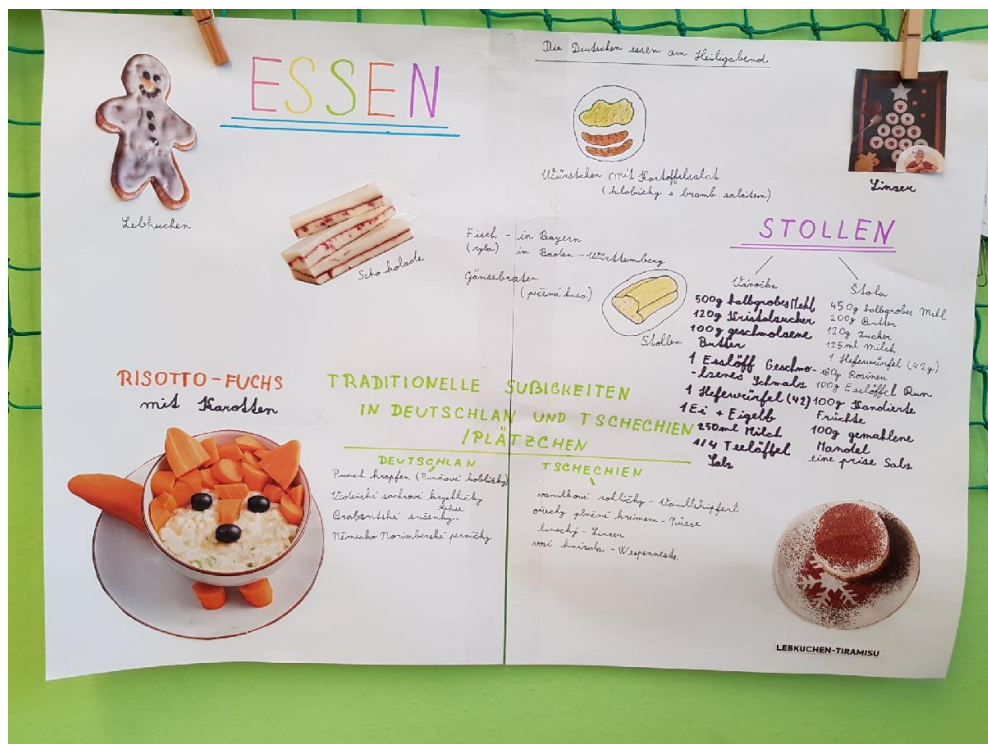 ESSEN
Die Deutschen essen am Heiligabend
Lebkuchen
Würstchen mit Kartoffelsalat
(klobásky s bramb. salátem)
Linser
Schokolade
Fisch - in Bayern
(ryba) in Baden-Württemberg
Gänsebraten
(pečená husa)
Stollen
STOLLEN
Vánočka
500g halbgrobes Mehl
120g Kristalzucker
100g geschmolzene
Butter
1 Esslöff Geschmo-
-lzenes Schmalz
1 Hefewürfel (42)
1 Ei + Eigelb
250ml Milch
1/4 Teelöffel
Salz
Štola
450g halbgrobes Mehl
200g Butter
120g Zucker
125ml Milch
1 Hefewürfel (42g)
Rosinen
100g Esslöffel Rum
100g Kandierte
Früchte
100g gemahlene
Mandel
eine prise Salz
RISOTTO-FUCHS
mit Karotten
TRADITIONELLE SUßIGKEITEN
IN DEUTSCHLAN UND TSCHECHIEN
/PLÄTZCHEN
DEUTSCHLAN
Punch krapfen (Punčové koblížky)
Brabantské sušenky
Německo Norimberské perníčky
TSCHECHIEN
vanilkové rohlíčky - Vanillekipferl
ořechy plněné krémem - Nüsse
linecký - Linzer
vosí hnízda - Wespenneste
LEBKUCHEN-TIRAMISU